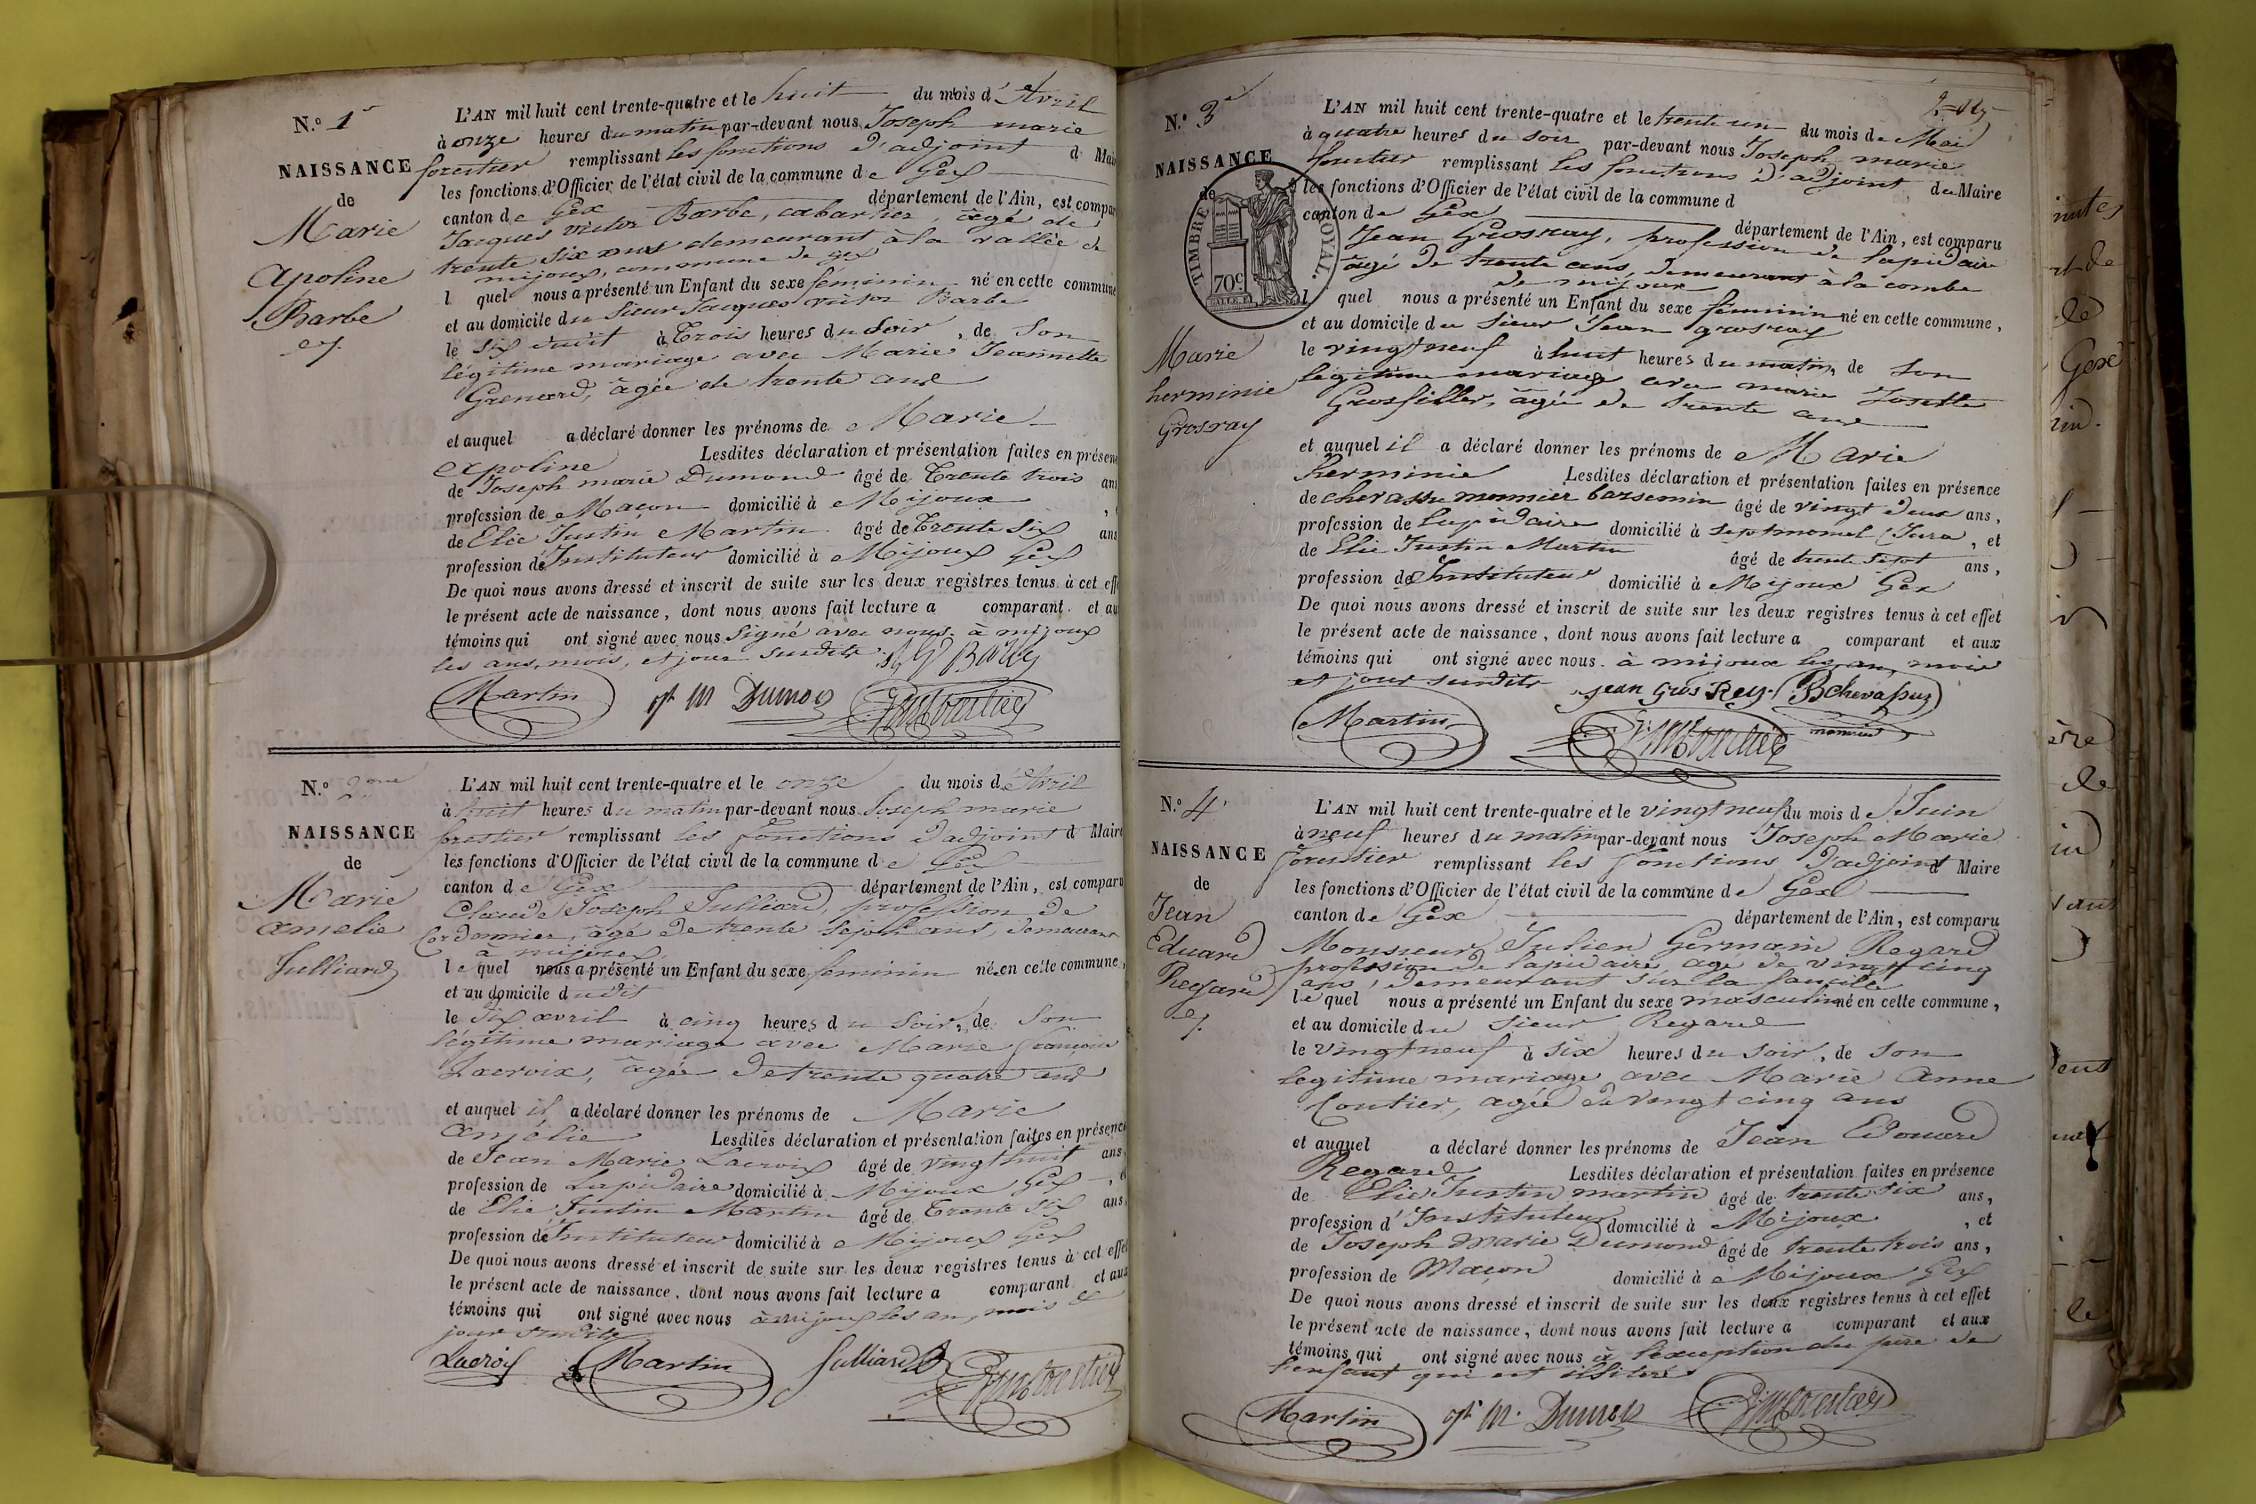 N.º 1
NAISSANCE
de
Marie
apoline
Barbe
L'AN mil huit cent trente-quatre et le huit du mois d'Avril
à onze heures du matin par-devant nous Joseph marie
forestier remplissant les fonctions d'adjoint d Mair
les fonctions d'Officier de l'état civil de la commune de Gex
canton de Gex département de l'Ain, est compar
Jacques victor Barbe, cabartier, âgé de
trente six ans demeurant à la vallée de
mijoux, commune de gex
l quel nous a présenté un Enfant du sexe féminin né en cette commune
et au domicile du Sieur Jacques victor Barbe
le six dudit à Trois heures du Soir, de Son
légitime mariage avec Marie Jeannette
Grenard, âgée de trente ans
et auquel a déclaré donner les prénoms de Marie
apoline Lesdites déclaration et présentation faites en présen
de Joseph marie Dumond âgé de Trente trois ans
profession de Maçon domicilié à Mijoux
de Elie Justin Martin âgé de Trente Six ans
profession d'Instituteur domicilié à Mijoux Gex
De quoi nous avons dressé et inscrit de suite sur les deux registres tenus à cet eff
le présent acte de naissance, dont nous avons fait lecture a comparant et au
témoins qui ont signé avec nous Signé avec nous à mijoux
les ans, mois, et jour susdits
Martin Dumod
N.º 2eme
NAISSANCE
de
Marie
amelie
Julliard
L'AN mil huit cent trente-quatre et le onze du mois d'Avril
à huit heures du matin par-devant nous Joseph marie
forestier remplissant les fonctions d'adjoint d Maire
les fonctions d'Officier de l'état civil de la commune de Gex
canton de Gex département de l'Ain, est comparu
Claude Joseph Julliard, profession de
Cordonnier, âgé de trente sept ans, demeurant
à mijoux
le quel nous a présenté un Enfant du sexe feminin né en cette commune,
et au domicile dudit
le dix avril à cinq heures du Soir, de Son
légitime mariage avec Marie françoise
Lacroix, âgée de trente quatre ans
et auquel il a déclaré donner les prénoms de Marie
amélie Lesdites déclaration et présentation faites en présence
de Jean Marie Lacroix âgé de vingt huit ans
profession de Lapidaire domicilié à Mijoux Gex
de Elie Justin Martin âgé de Trente Six ans
profession d'Instituteur domicilié à Mijoux Gex
De quoi nous avons dressé et inscrit de suite sur les deux registres tenus à cet effet
le présent acte de naissance, dont nous avons fait lecture a comparant et aux
témoins qui ont signé avec nous à mijoux les an, mois et
jour susdits
Lacroix Martin Julliard
N.º 3
NAISSANCE
de
TIMBRE ROYAL.
70c
Marie
herminie
Grosray
L'AN mil huit cent trente-quatre et le trente un du mois de Mai
à quatre heures du soir par-devant nous Joseph marie
forestier remplissant les fonctions d'adjoint du Maire
les fonctions d'Officier de l'état civil de la commune d
canton de Gex département de l'Ain, est comparu
Jean Grosray, profession de lapidaire
âgé de trente ans, demeurant à la combe
de mijoux
l quel nous a présenté un Enfant du sexe féminin né en cette commune,
et au domicile du Sieur Jean grosray
le vingt neuf à huit heures du matin, de son
légitime mariage avec marie Josette
Grosfiller, âgée de trente ans
et auquel il a déclaré donner les prénoms de Marie
herminie Lesdites déclaration et présentation faites en présence
de chevassu monnier âgé de vingt deux ans,
profession de lapidaire domicilié à septmoncel (Jura, et
de Elie Justin Martin âgé de trente sept ans,
profession d'Instituteur domicilié à Mijoux Gex
De quoi nous avons dressé et inscrit de suite sur les deux registres tenus à cet effet
le présent acte de naissance, dont nous avons fait lecture a comparant et aux
témoins qui ont signé avec nous. à mijoux les an, mois
et jour susdits
Jean Gros Rey. B chevassus
Martin monnier
N.º 4
NAISSANCE
de
Jean
Eduard
Regard
L'AN mil huit cent trente-quatre et le vingt neuf du mois de Juin
à neuf heures du matin par-devant nous Joseph Marie
forestier remplissant les fonctions d'adjoint d Maire
les fonctions d'Officier de l'état civil de la commune de Gex
canton de Gex département de l'Ain, est comparu
Monsieur Julien Germain Regard
profession de lapidaire, agé de vingt cinq
ans, demeurant sur la faucille
le quel nous a présenté un Enfant du sexe masculin né en cette commune,
et au domicile du sieur Regard
le vingt neuf à six heures du soir, de son
legitime mariage avec Marie Anne
Coutier, agée de vingt cinq ans
et auquel a déclaré donner les prénoms de Jean Edouard
Regard Lesdites déclaration et présentation faites en présence
de Elie Justin martin âgé de trente six ans,
profession d'Instituteur domicilié à Mijoux, et
de Joseph Marie Dumond âgé de trente trois ans,
profession de Maçon domicilié à Mijoux Gex
De quoi nous avons dressé et inscrit de suite sur les deux registres tenus à cet effet
le présent acte de naissance, dont nous avons fait lecture a comparant et aux
témoins qui ont signé avec nous à l'exception du père de
l'enfant qui est illitéré
Martin Dumod